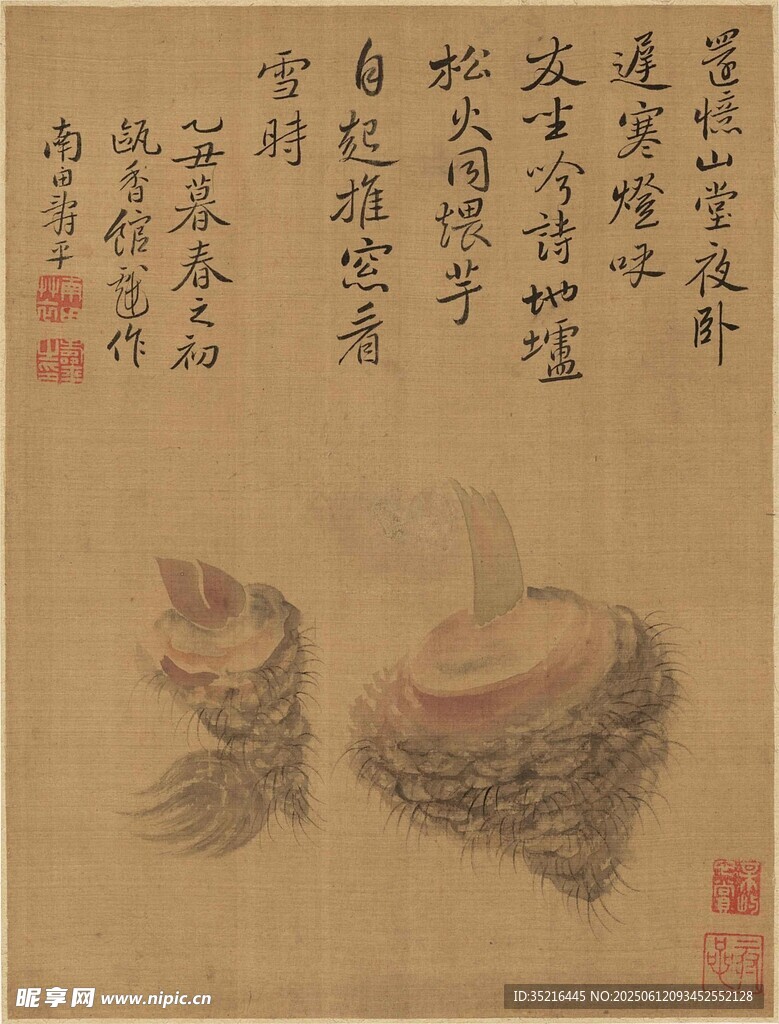 還憶山堂夜卧
遲寒燈呼
友坐吟詩地壚
松火同煨芋
自起推窓看
雪時
乙丑暮春之初
甌香館戲作
南田壽平
昵享网 www.nipic.cn
ID:35216445 NO:20250612093452552128